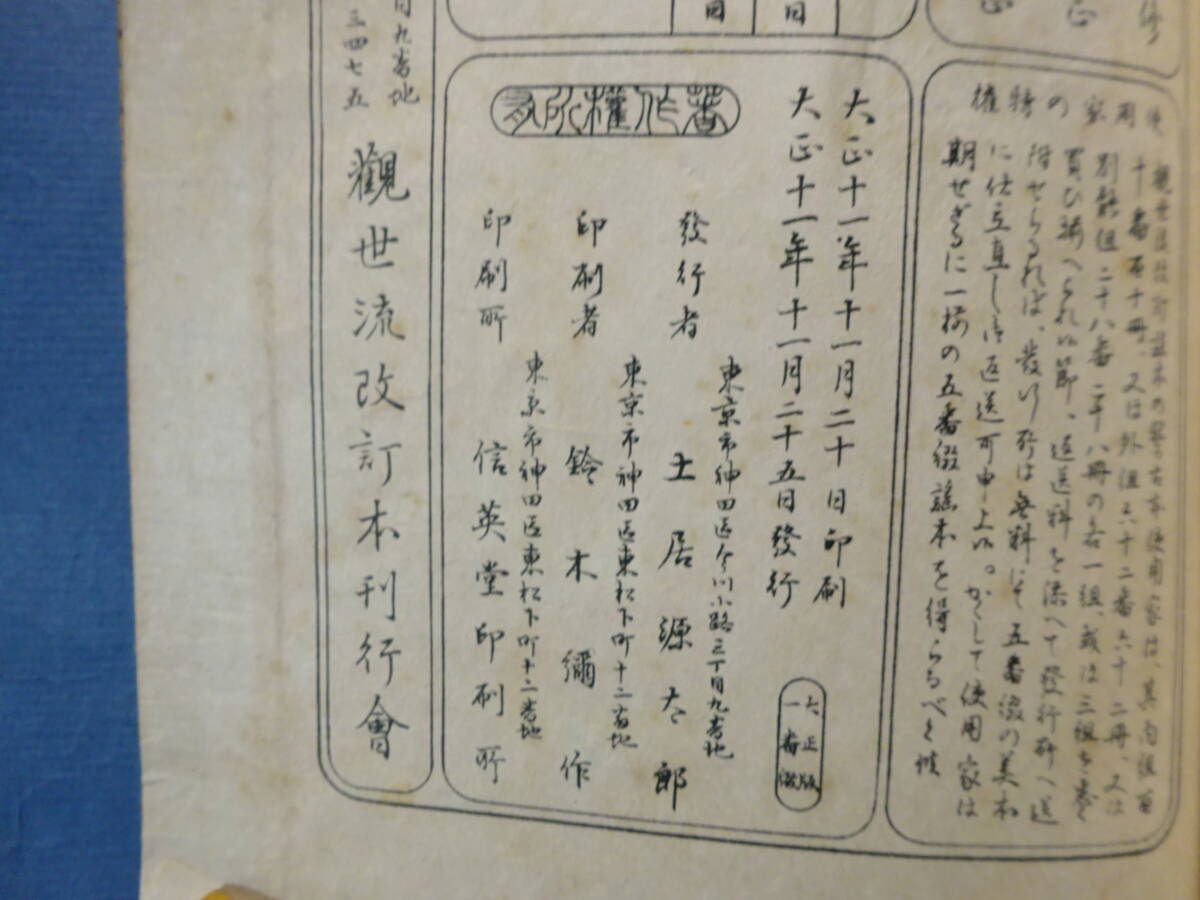 権特の家用使
観世流改訂本の稽古本使用家は、其内組百
十番百十冊、又は外組六十二番六十二冊、又は
別能組二十八番二十八冊の各一組、或は三組を悉く
買ひ揃へられい節、返送料を添へて發行所へ送
附せらるれば、發行所は無料にて五番綴の美本
に仕立直しい返送可申上い。かくして使用家は
期せざるに一揃の五番綴謡本を得らるべく候
大正十一年十一月二十日印刷
大正十一年十一月二十五日發行
大正版
一番綴
著作權所有
東京市神田區今川小路三丁目九番地
發行者 土居源太郎
東京市神田區東松下町十二番地
印刷者 鈴木彌作
東京市神田區東松下町十二番地
印刷所 信英堂印刷所
目九番地
三四七五
觀世流改訂本刊行會